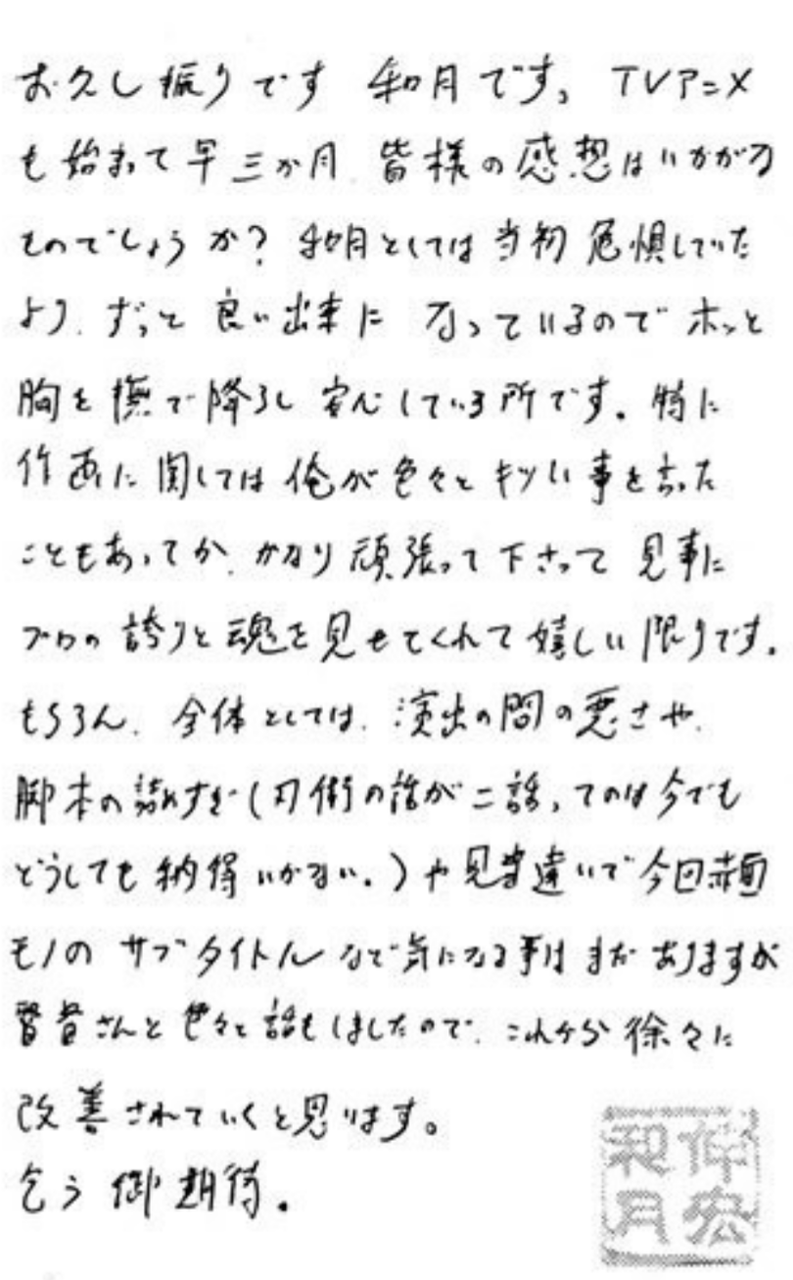 お久し振りです 和月です。 TVアニメ
も始まって早三か月 皆様の感想はいかがな
ものでしょうか? 和月としては当初危惧していた
より、ずっと良い出来になっているのでホッと
胸を撫で降ろし安心している所です。特に
作画に関しては俺が色々とキツい事を言った
こともあってか、かなり頑張って下さって見事に
プロの誇りと魂を見せてくれて嬉しい限りです。
もちろん、全体としては、演出の間の悪さや、
脚本の詰めすぎ(刃衛の話が二話ってのは今でも
どうしても納得いかない。)や見当違いで今回赤面
モノのサブタイトルなど気になる事はまだありますが
監督さんと色々と話もしましたので、これから徐々に
改善されていくと思います。
乞う御期待。
和月伸宏